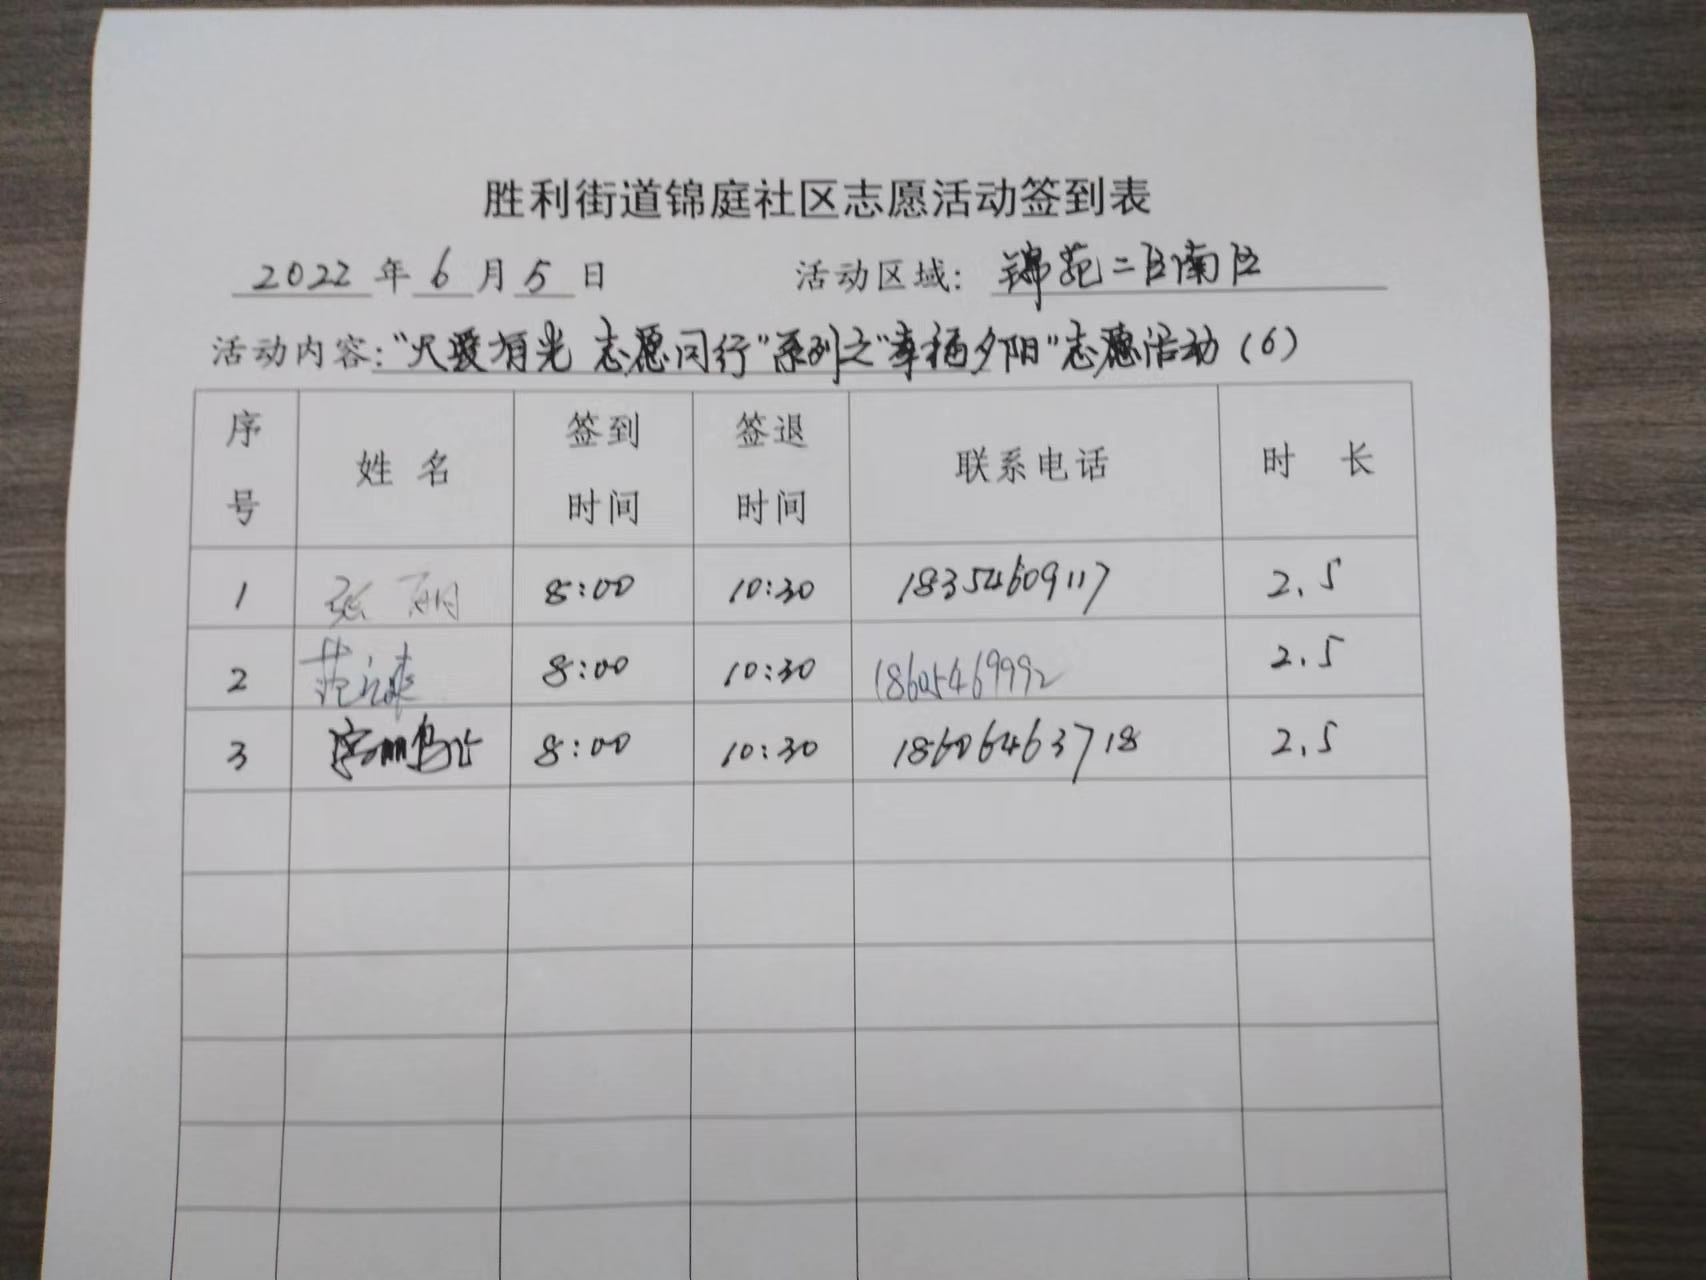 胜利街道锦庭社区志愿活动签到表
2022 年 6 月 5 日 活动区域: 锦苑二区南区
活动内容:“大爱有光 志愿同行”系列之“幸福夕阳”志愿活动(6)
序号 姓名 签到时间 签退时间 联系电话 时长
1 张丽 8:00 10:30 18354609117 2.5
2 8:00 10:30 18605469992 2.5
3 8:00 10:30 18606463718 2.5